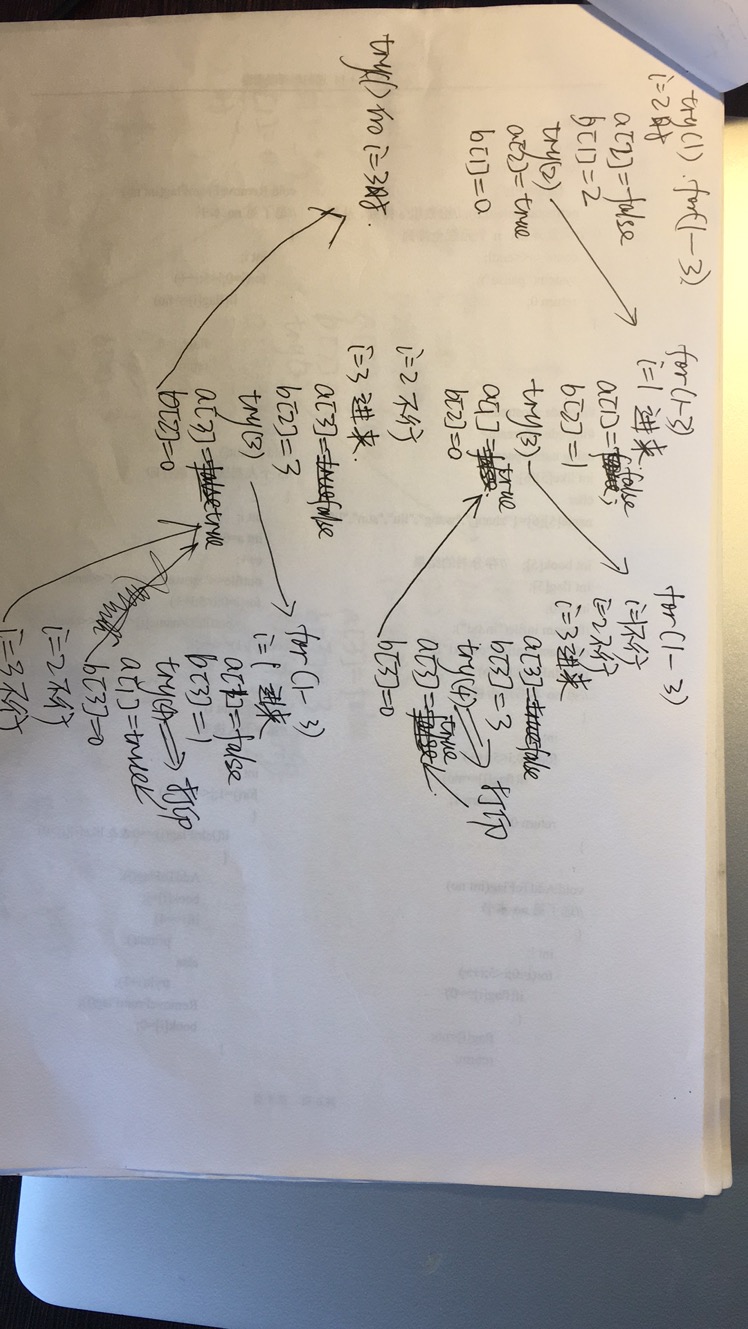 try(1). for(1—3)
i=2时
a[2]=false
b[1]=2
try(2)
a[2]=true
b[1]=0
try(1)
i=3时.
for(1-3)
i=1 进来.
a[1]=false;
b[2]=1
try(3)
a[1]=true
b[2]=0
i=2 不行
i=3 进来.
a[3]=false
b[2]=3
try(3)
a[3]=true
b[2]=0
for(1-3)
i=1不行
i=2不行
i=3进来
a[3]=false
b[3]=3
try(4) 打印
a[3]=true
b[3]=0
for(1-3)
i=1 进来
a[1]=false
b[3]=1
try(4) 打印
a[1]=true
b[3]=0
i=2不行
i=3不行